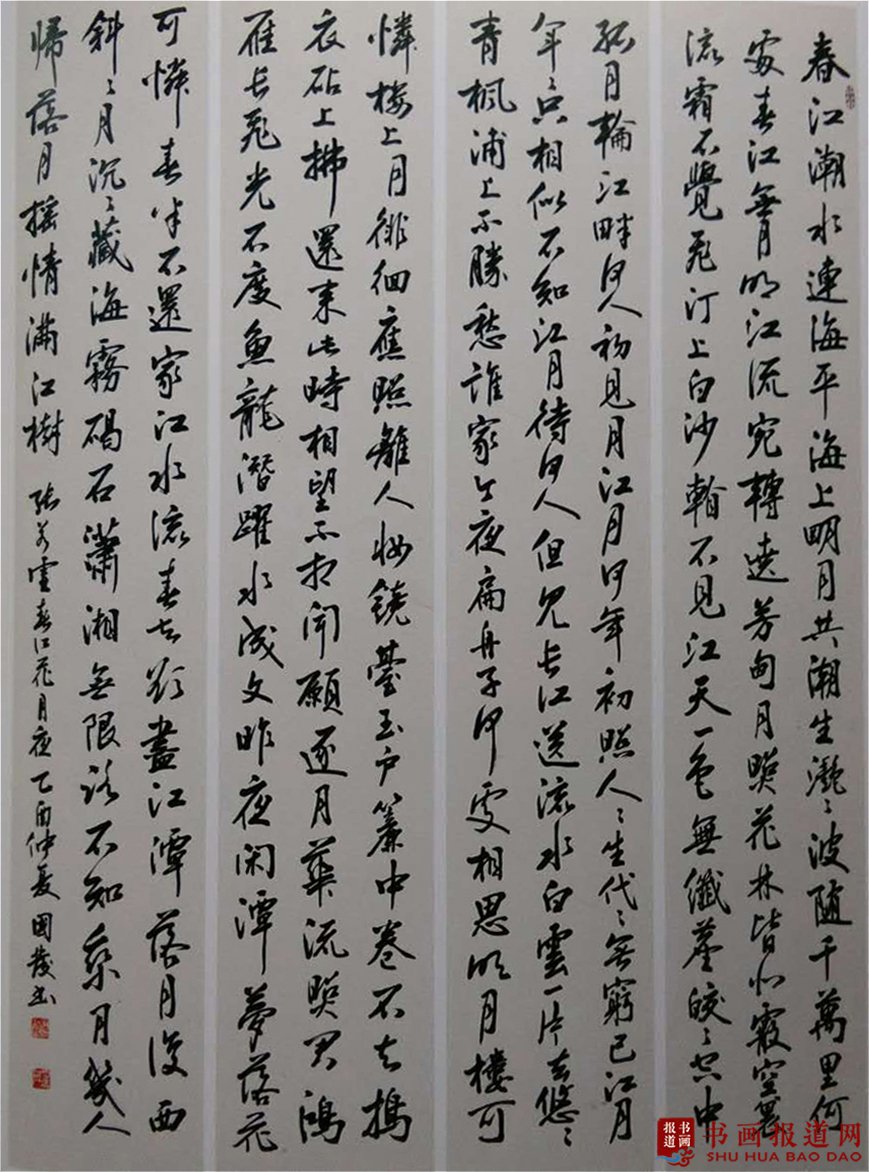 春江潮水連海平海上明月共潮生灔〻波随千萬里何
處春江無月明江流宛轉遶芳甸月照花林皆似霰空裏
流霜不覺飛汀上白沙看不見江天一色無纖塵皎〻空中
孤月輪江畔何人初見月江月何年初照人〻生代〻無窮已江月
年〻只相似不知江月待何人但見長江送流水白雲一片去悠〻
青楓浦上不勝愁誰家今夜扁舟子何處相思明月樓可
憐樓上月徘徊應照離人妝鏡臺玉户簾中卷不去搗
衣砧上拂還来此時相望不相聞願逐月華流照君鴻
雁長飛光不度魚龍潛躍水成文昨夜闲潭夢落花
可憐春半不還家江水流春去欲盡江潭落月復西
斜〻月沉〻藏海霧碣石瀟湘無限路不知乘月幾人
帰落月摇情滿江樹
張若虛春江花月夜乙酉仲夏國發书
书画报道
书画报道网
SHU HUA BAO DAO